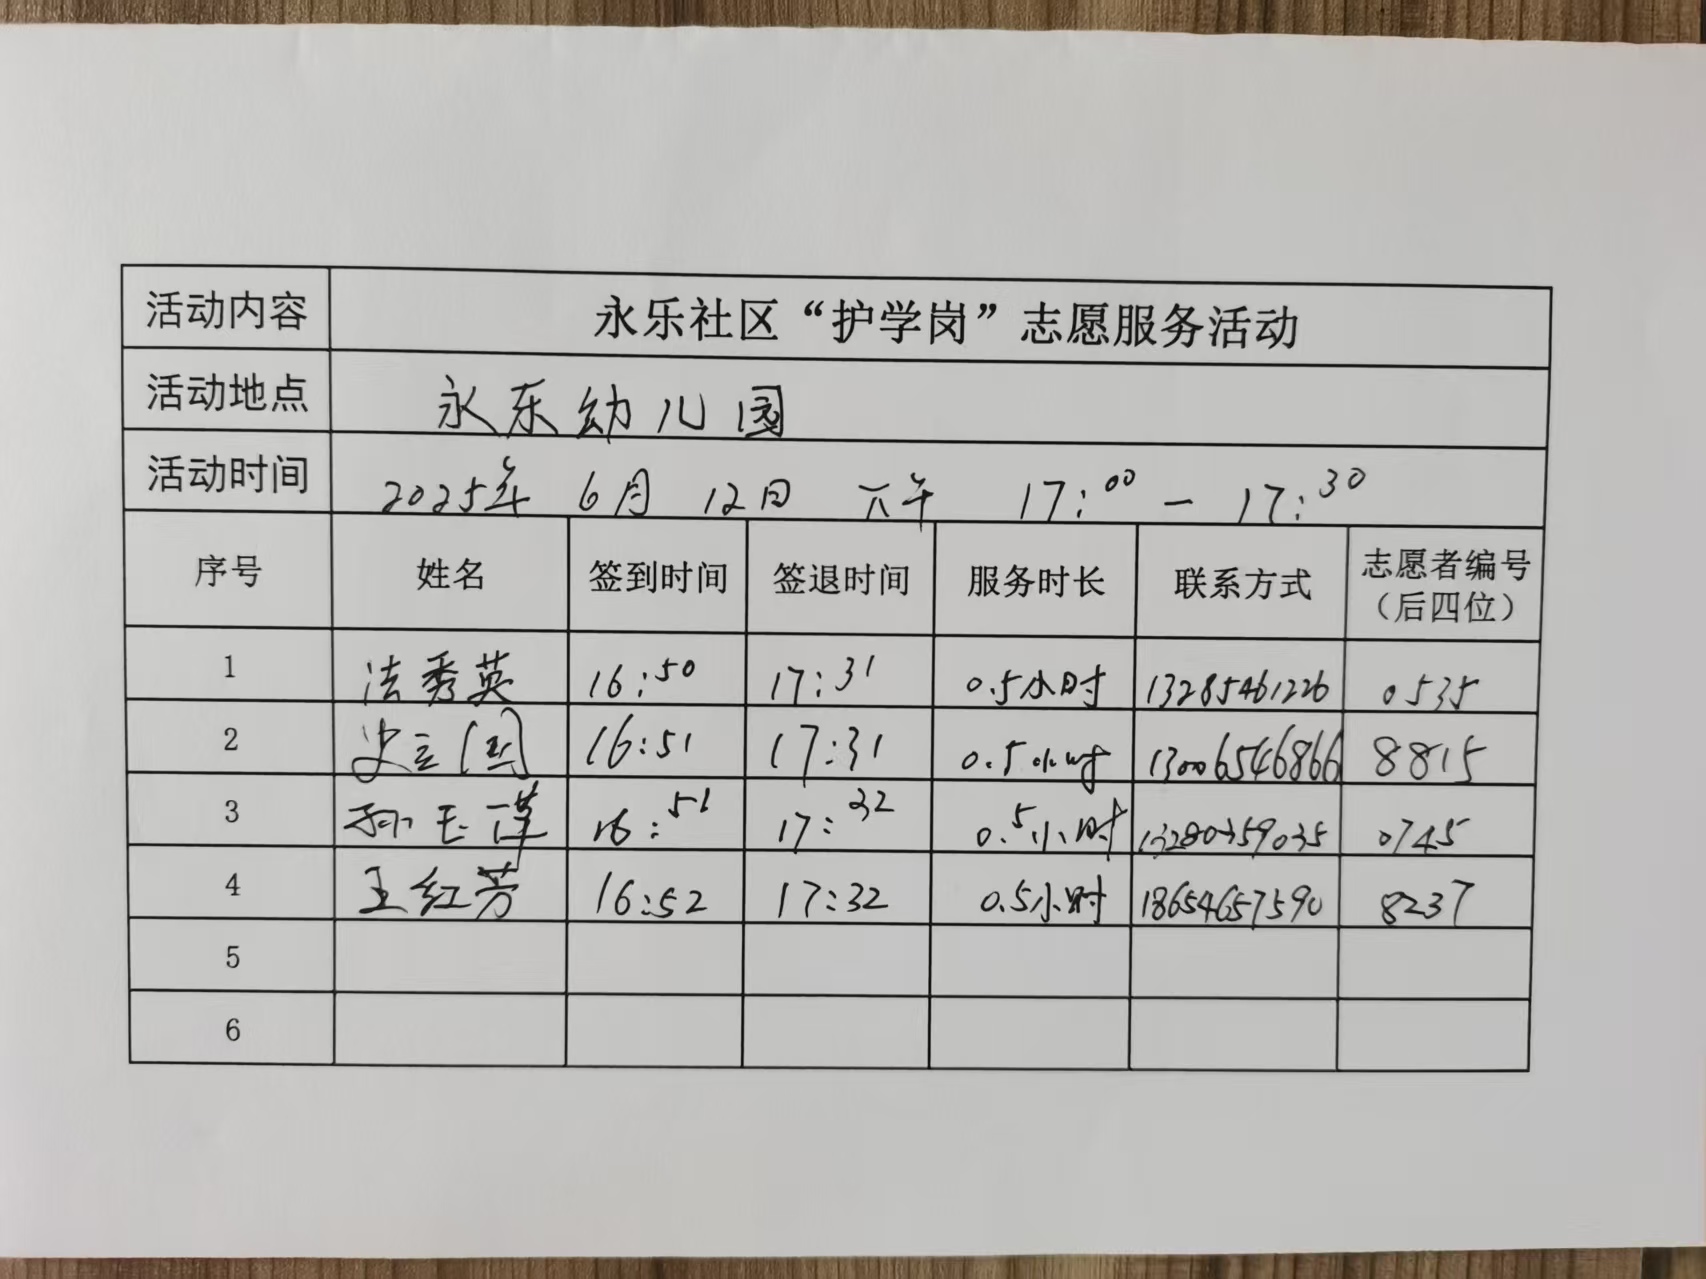 活动内容 永乐社区“护学岗”志愿服务活动
活动地点 永乐幼儿园
活动时间 2025年 6月 12日 下午 17:00 — 17:30
序号 姓名 签到时间 签退时间 服务时长 联系方式 志愿者编号（后四位）
1 法秀英 16:50 17:31 0.5小时 13285461226 0535
2 史立国 16:51 17:31 0.5小时 13006546866 8815
3 孙玉萍 16:51 17:32 0.5小时 13280359035 0745
4 王红芳 16:52 17:32 0.5小时 18654657590 8237
5
6